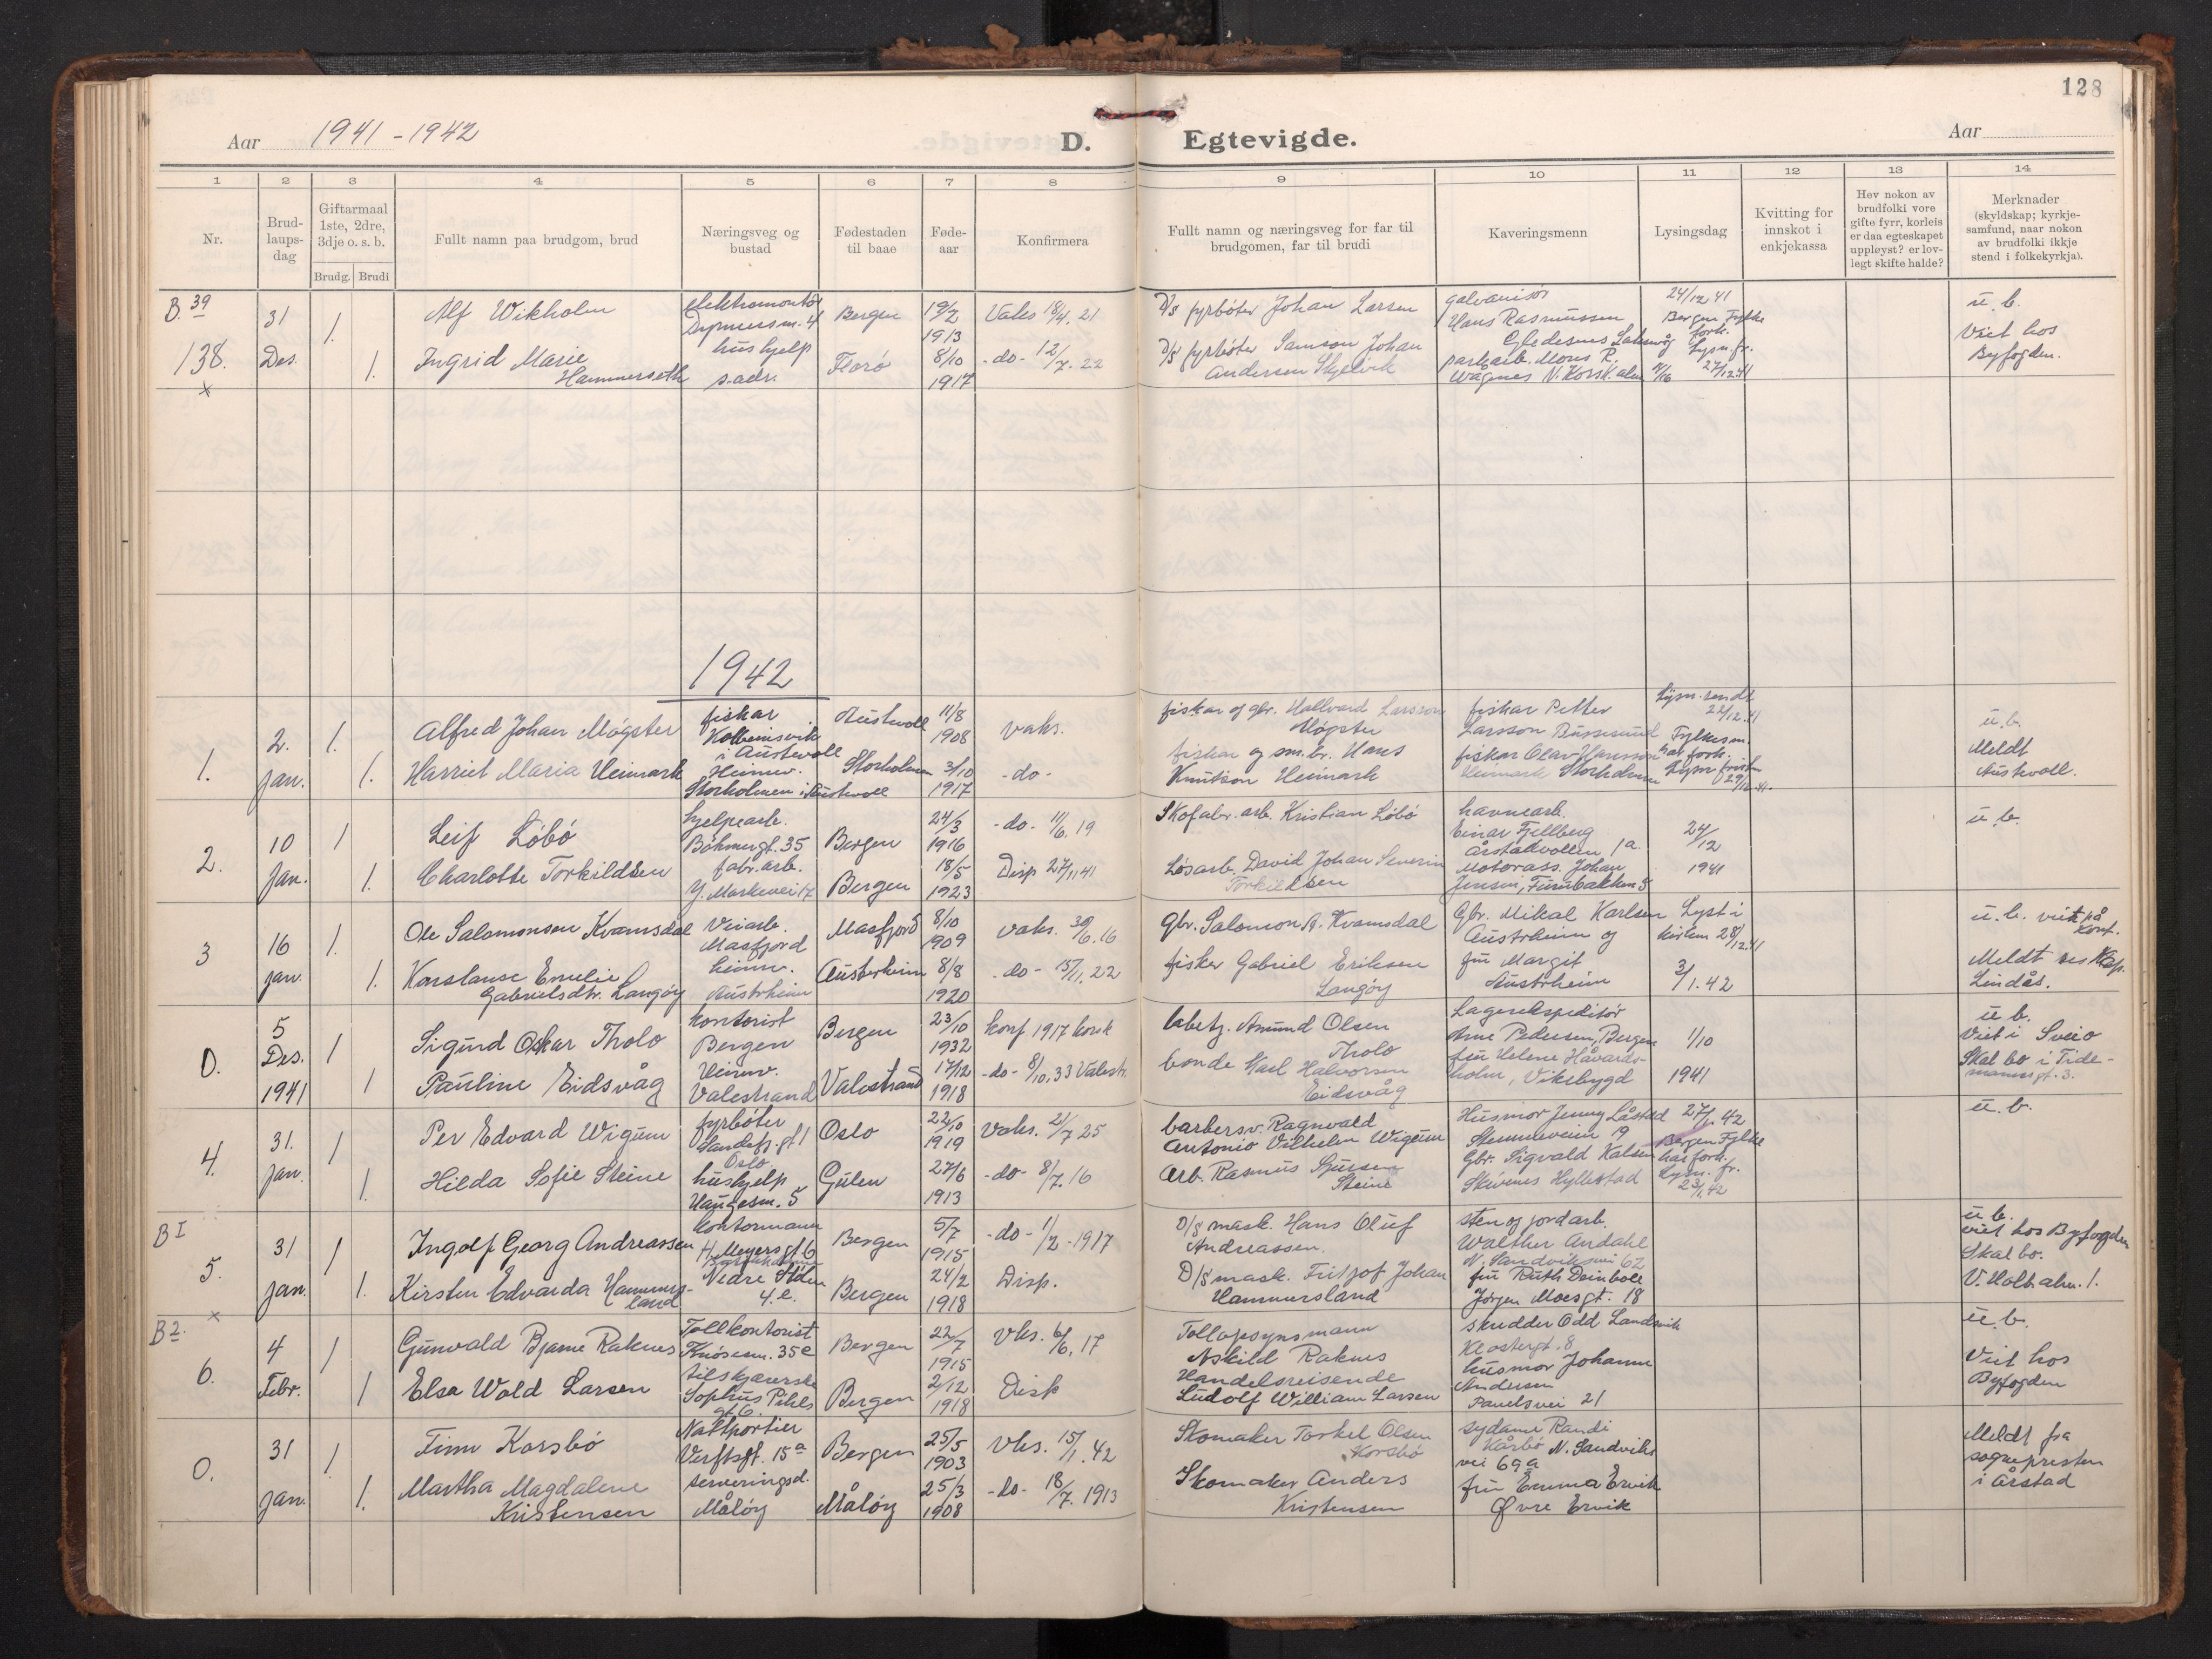 128
Aar 1941-1942
D. Egtevigde.
Aar
1 2 3 4 5 6 7 8 9 10 11 12 13 14
Nr.
Brud-
laups-
dag
Giftarmaal
1ste, 2dre,
3dje o. s. b.
Brudg. Brudi
Fullt namn paa brudgom, brud
Næringsveg og
bustad
Fødestaden
til baae
Føde-
aar
Konfirmera
Fullt namn og næringsveg for far til
brudgomen, far til brudi
Kaveringsmenn
Lysingsdag
Kvitting for
innskot i
enkjekassa
Hev nokon av
brudfolki vore
gifte fyrr, korleis
er daa egteskapet
uppløyst? er lov-
legt skifte halde?
Merknader
(skyldskap; kyrkje-
samfund, naar nokon
av brudfolki ikkje
stend i folkekyrkja).
B. 39
138.
x
31
Des.
1.
1.
Alf Wikholm
Ingrid Marie
Hammerseth
elektromontør
hushjelp
s. adr.
Bergen
Florø
19/2
1913
8/10
1917
Vaks 18/4. 21
-do- 12/7. 22
D/s fyrbøter Johan Larsen
D/s fyrbøter Samson Johan
Andersen Skjelvik
galvanisør
Hans Rasmussen
parkarb. Mons R.
24/12 41
Bergen Fylke
fork.
Lysn. fr.
27/12.41
u. b.
Viet hos
Byfogden.
1942
1.
2.
jan.
1.
1.
Alfred Johan Møgster
Harriet Maria Heimark
fiskar
Kolbeinsvik
i Austevoll
Heimv.
Storholmen i Austevoll
Austevoll
Storholmen
11/8
1908
3/10
1917
vaks.
-do-
fiskar og gbr. Hallvard Larsson
Møgster
fiskar og sm.br. Hans
Knutson Heimark
fiskar Petter
Larsson
fiskar Olav Hansson
Heimark Storholmen
Lysn. sendt
22/12.41
Fylkesm.
har fork.
Lysn. frist
29/12.41.
u. b.
Meldt
Austevoll.
2.
10
Jan.
1
1.
Leif Løbø
Charlotte Torkildsen
hjelpearb.
Bøhmergt. 35
fabr. arb.
Y. Markevei 17
Bergen
Bergen
24/3
1916
18/5
1923
-do- 11/6. 19
Disp 27/11 41
Skofabr. arb. Kristian Løbø
Løsarb. David Johan Severin
Torkildsen
havnearb.
Einar Fjellberg
Årstadvollen 1a.
Motorass. Johan
Jensen,
24/12
1941
u. b.
3
16
jan.
1.
1.
Ole Salomonsen Kvamsdal
Konstanse Emelie
Gabrielsdtr. Langøy
Veiarb.
Masfjord
heimv.
Austrheim
Masfjord
Austerheim
8/10
1909
8/8
1920
vaks. 30/6.16
-do- 15/11, 22
gbr. Salomon A. Kvamsdal
fisker Gabriel Eriksen
Langøy
Gbr. Mikal Karlsen
Austrheim og
fru Margit
Austrheim
Lyst i
kirken 28/12.41
3/1.42
u. b. viet på
kont.
Meldt res Kap.
Lindås.
0.
5
Des.
1941
1
1
Sigurd Oskar Tholo
Pauline Eidsvåg
kontorist
Bergen
Heimv.
Valestrand
Bergen
Valestrand
23/10
1932
17/12
1918
konf 1917 korsk
-do- 8/10. 33 Valestr.
Asmund Olsen
Tholo
bonde Karl Halvorsen
Eidsvåg
Lagerekspeditør
Arne Pedersen, Bergen
fru Helene Håvards-
holm, Vikebygd
1/10
1941
u. b.
Viet i Sveio
Skal bo i Tide-
mannsgt. 3.
4.
31.
jan.
1
1.
Per Edvard Wigum
Hilda Sofie Steine
fyrbøter
Oslo
hushjelp
Haugesm. 5
Oslo
Gulen
22/10
1919
27/6
1913
Vaks. 21/7 25
-do- 8/7. 16
barbersv. Ragnvald
Antonio Vilhelm Wigum
Arb. Rasmus
Steine
Husmor Jenny Låstad
Stemmeveien 19
Gbr. Sigvald Kalsen
Skivenes Hyllestad
27/1. 42
Bergen Fylke
har fork.
Lysn. fr.
23/1.42
u. b.
B I
5.
x
31
jan.
1
1.
Ingolf Georg Andreassen
Kirsten Edvarda Hammers-
land
kontormann
H. Meyersgt 6
Nedre Støen
4. e.
Bergen
Bergen
5/7
1915
24/2
1918
-do- 1/2 - 1917
Disp.
D/s mask. Hans Oluf
Andreassen.
D/s mask. Fritjof Johan
Hammersland
sten og jordarb.
Walther Andahl
N. Sandviksvei 62
fru Ruth Deinboll
Jørgen Moesgt. 18
u. b.
viet hos Byfogden
Skal bo.
V. Holbalm. 1.
B 2.
6.
4
Febr.
1
1
Gunvald Bjarne Raknes
Elsa Wold Larsen
Tollkontorist
Knøsesm. 35e
tilskjærerske
Sophus Pihls
gt 6.
Bergen
Bergen
22/7
1915
2/12
1918
Vks. 6/6, 17
Disp
Tollopsynsmann
Askild Raknes
Handelsreisende
Ludolf William Larsen
skredder Odd Landsvik
Klostergt. 8
husmor Johanne
Andersen
Paulsvei 21
u. b.
Viet hos
Byfogden
0.
31
jan.
1.
1.
Finn Korsbø
Martha Magdalene
Kristensen
Nattportier
Verftsgt. 15a
serveringsd.
Måløy
Bergen
Måløy
25/5
1903
25/3
1908
Vks. 15/1. 42
-do- 18/7. 1913
Skomaker Torkel Olsen
Korsbø
Skomaker Anders
Kristensen
sydame Randi
Kårbø N. Sandviks
vei 69a
fru Emma Ervik
Øvre Ervik
Meldt fra
sognepresten
i Årstad